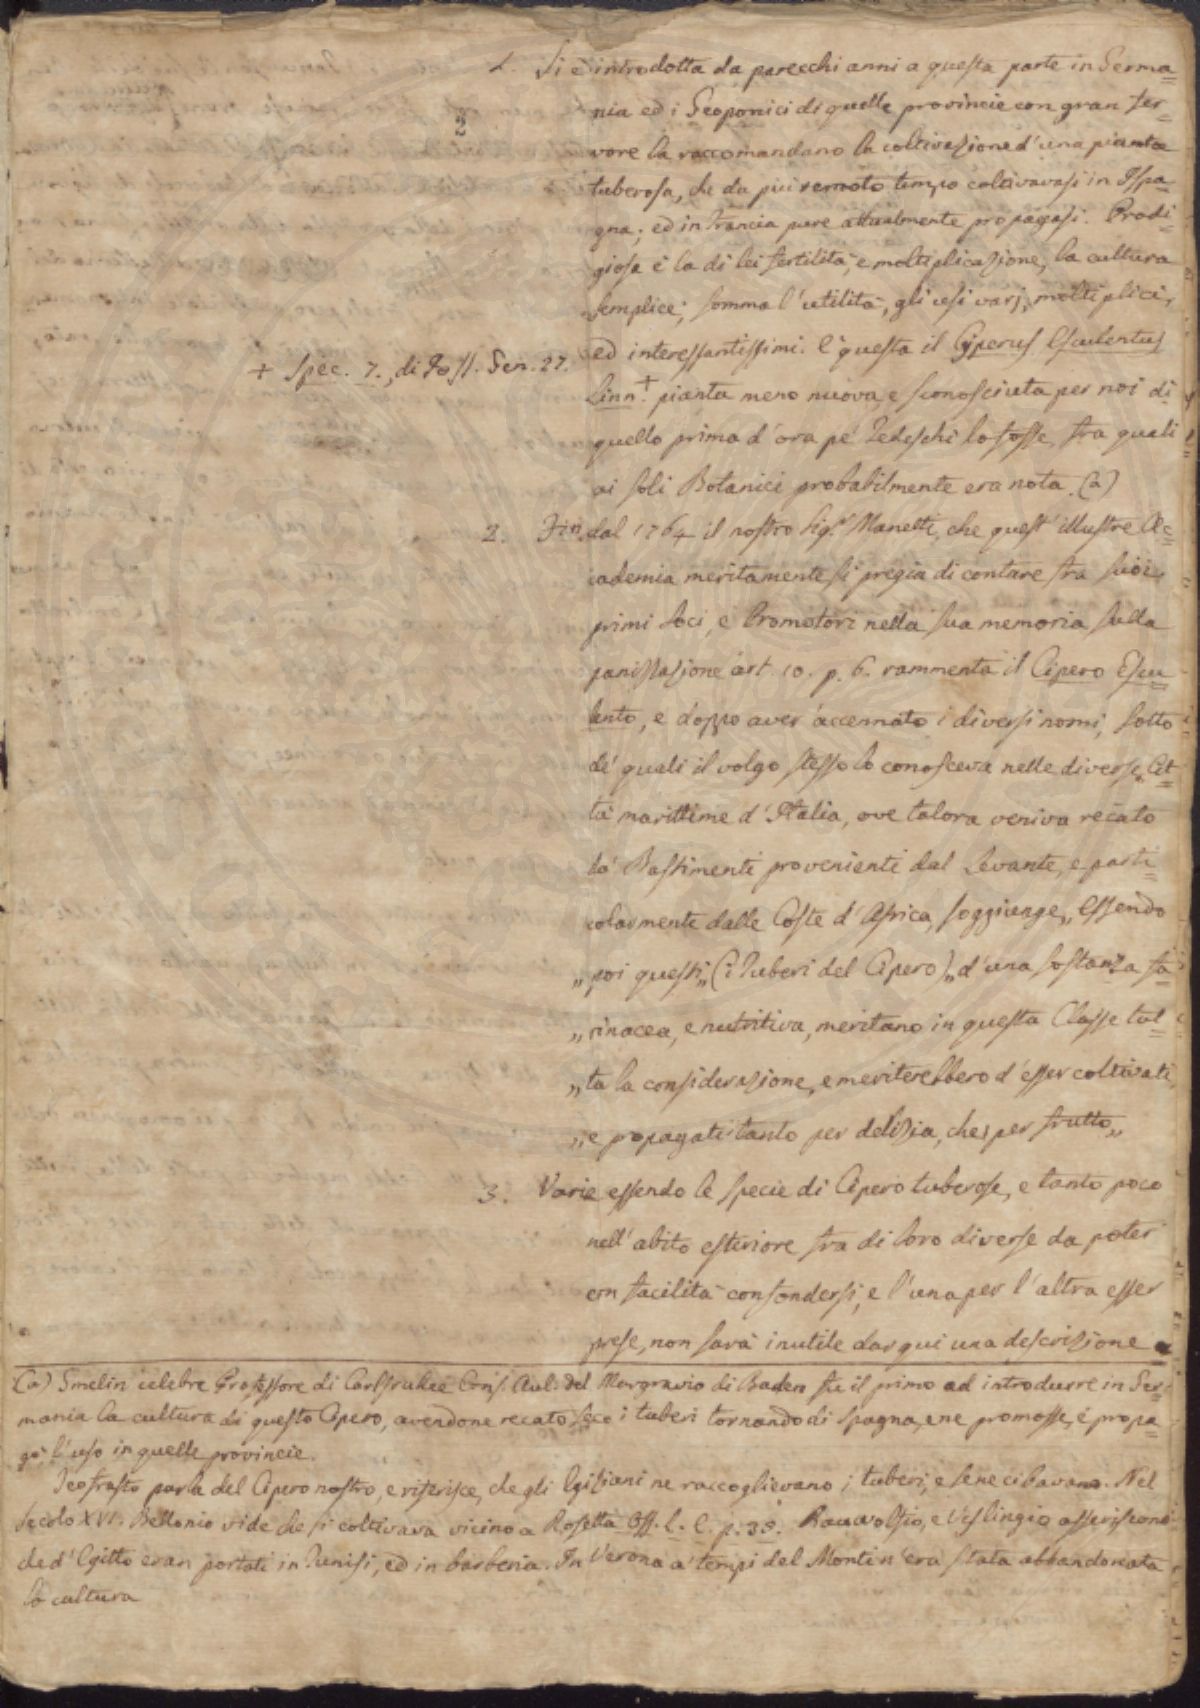 1. Si è introdotta da parecchi anni a questa parte in Germa=
nia ed i Geoponici di quelle provincie con gran fer=
vore la raccomandano la coltivazione d'una pianta
tuberosa, che da più remoto tempo coltivavasi in Ispa=
gna; ed in Francia pure attualmente propagasi. Prodi=
giosa è la di lei fertilità, e moltiplicazione, la cultura
semplice; somma l'utilità, gli usi varj, moltiplici,
ed interessantissimi. È questa il Cyperus Esculentus
+ Spec. 7., di Foss. Gen. 27.
Linn.+ pianta meno nuova, e sconosciuta per noi di
quello prima d'ora pe' Tedeschi lo fosse, fra quali
ai soli Botanici probabilmente era nota. (a)
2
2. Fin dal 1764 il nostro Sig.r Manetti, che quest'illustre Ac=
cademia meritamente si pregia di contare fra suoi
primi Soci, e Promotori nella sua memoria sulla
panizzazione art. 10. p. 6. rammenta il Cipero Escu=
lento, e doppo aver accennato i diversi nomi, sotto
de' quali il volgo stesso lo conosceva nelle diverse Cit=
tà marittime d'Italia, ove talora veniva recato
da' Bastimenti provenienti dal Levante, e parti=
colarmente dalle Coste d'Africa, soggiunge „Essendo
„poi questi„ (i Tuberi del Cipero) „d'una sostanza fa=
„rinacea, e nutritiva, meritano in questa Classe tut=
„ta la considerazione, e meriterebbero d'esser coltivati,
„e propagati tanto per delizia, che per frutto„
3. Varie essendo le specie di Cipero tuberose, e tanto poco
nell'abito esteriore fra di loro diverse da poter
con facilità confondersi, e l'una per l'altra esser
prese, non sarà inutile dar qui una descrizione
(a) Gmelin celebre Professore di Carlsruhee Cons. Aul. del Margravio di Baden fu il primo ad introdurre in Ger=
mania la cultura di questo Cipero, avendone recato seco i tuberi tornando di Spagna, e ne promosse, e propa=
gò l'uso in quelle provincie.
Teofrasto parla del Cipero nostro, e riferisce, che gli Egiziani ne raccoglievano i tuberi, e se ne cibavano. Nel
Secolo XVI. Bellonio vide che si coltivava vicino a Rosetta Oss. L. 2. p. 38. Rauwolfio, e Veslingio asseriscono
che d'Egitto eran portati in Tunisi, ed in barberia. In Verona a' tempi del Monti n'era stata abbandonata
la cultura